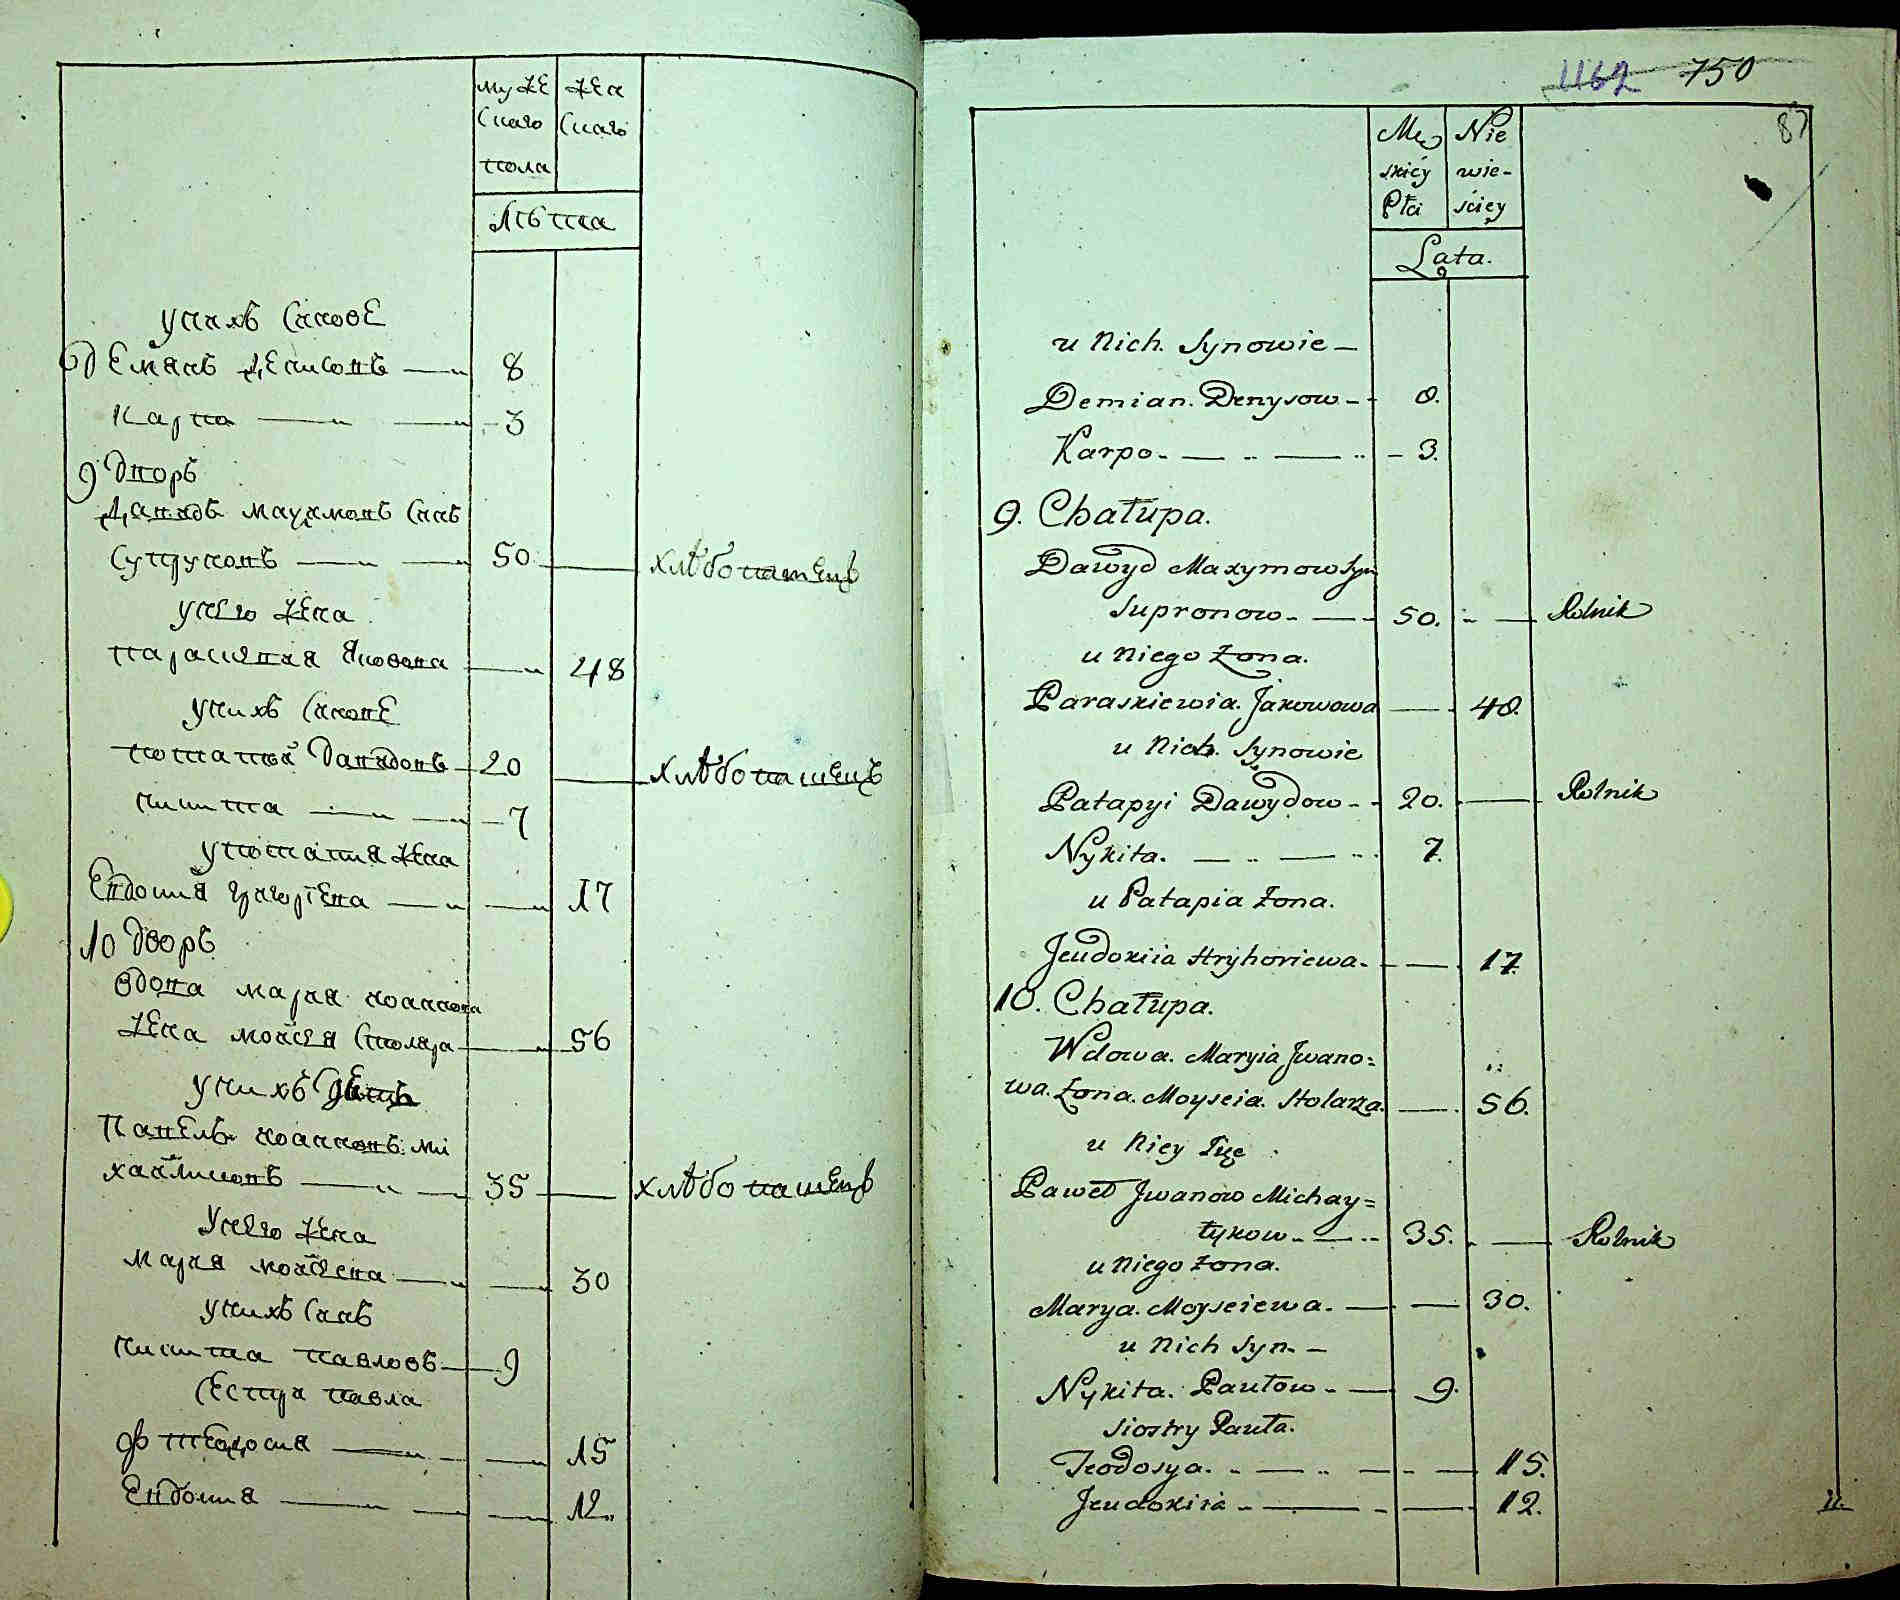 муже
скаго
пола
жен
скаго
лѣта
у нихъ синове
Демянъ Денисовъ 8
Карпо 3
9 дворъ
Давидъ Махимовъ синъ
Супруновъ 50 хлѣбопашецъ
у него жена
Параскевия Яковова 48
у нихъ синове
Потапій Давидовъ 20 хлѣбопашецъ
Никита 7
у Потапия жена
Евдокия Григоріева 17
10 дворъ
вдова Мария Иоаннова
жена Мойсея столяра 56
у нихъ
Павелъ Иоанновъ Ми
хайликовъ 35 хлѣбопашецъ
у него жена
Мария Мойсеева 30
у нихъ синъ
Никита Павловъ 9
сестри Павла
Фтеодосия 15
Евдокия 12
1162 750
87
Mę
skiéy
Płci
Nie
wie-
ściey
Lata.
u Nich. Synowie
Demian. Denysow 8.
Karpo. 3.
9. Chałupa.
Dawyd Maxymow Syn
Supronow 50. Rolnik
u Niego Żona.
Paraskiewia. Jakowowa 48.
u Nich. Synowie
Patapyi Dawydow 20. Rolnik
Nykita. 7.
u Patapia Żona.
Jeudokiia Hryhoriewa. 17.
10. Chałupa.
Wdowa. Maryia Jwano=
wa. Żona. Moyseia. Stolarza. 56.
u Niey
Paweł Jwanow Michay=
łykow 35. Rolnik
u Niego Żona.
Marya. Moyseiewa. 30.
u Nich Syn.
Nykita. Pawłow. 9.
Siostry Pawła.
Teodosya. 15.
Jeudokiia 12.
11.